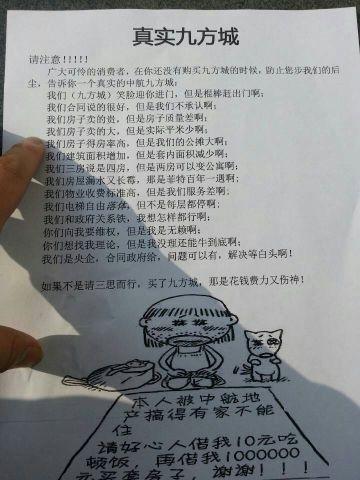 真实九方城
请注意！！！！！
广大可怜的消费者，在你还没有购买九方城的时候，防止您步我们的后
尘，告诉你一个真实的中航九方城；
我们（九方城）笑脸迎你进门，但是棍棒赶出门啊；
我们合同说的很好，但是我们不承认啊；
我们房子卖的贵，但是房子质量差啊；
我们房子卖的大，但是实际平米少啊；
我们房子得房率高，但是我们的公摊大啊；
我们建筑面积增加，但是套内面积减少啊；
我们三房说是四房，但是两房可以变公寓啊；
我们房屋漏水又长霉，那是菲特百年一遇啊；
我们物业收费标准高，但是我们服务差啊；
我们电梯自由落体，但不是每层都停啊；
我们和政府关系铁，我想怎样都行啊；
你们向我要维权，但是我是无赖啊；
你们想找我理论，但是我没理还能牛到底啊；
我们是央企，合同政府给，问题可以有，解决等白头啊！
如果不是请三思而行，买了九方城，那是花钱费力又伤神！
本人被中航地
产搞得有家不能
住
请好心人借我10元吃
顿饭，再借我1000000
元买套房子，谢谢！！！